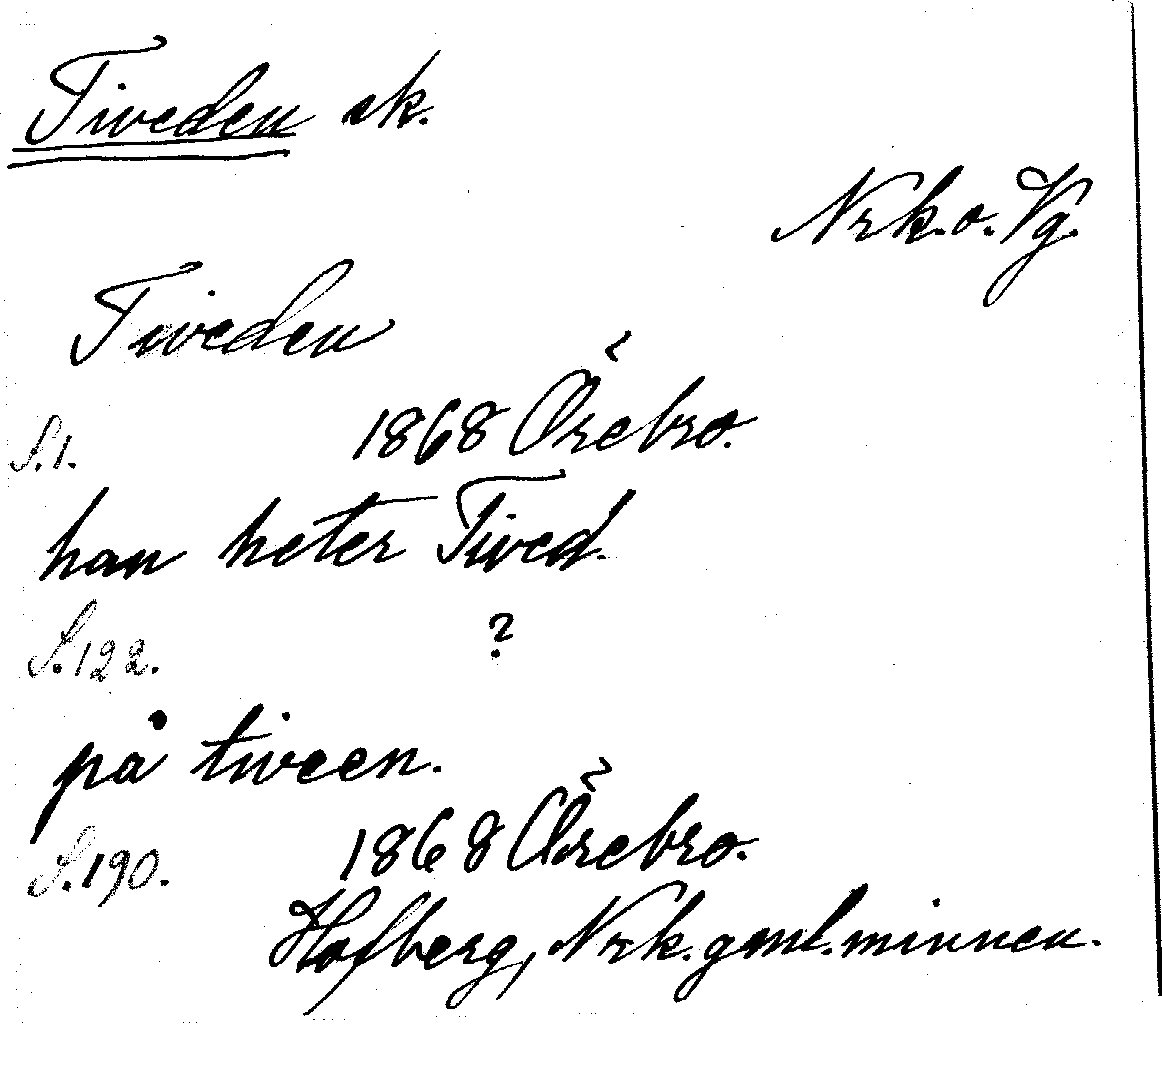 Tiveden sk.
Nrk. o. Vg.
Tiveden
S. 1. 1868 Örebro.
han heter Tived.
S. 122. ?
på tiveen.
S. 190. 1868 Örebro.
Hofberg, Nrk. gml. minnen.